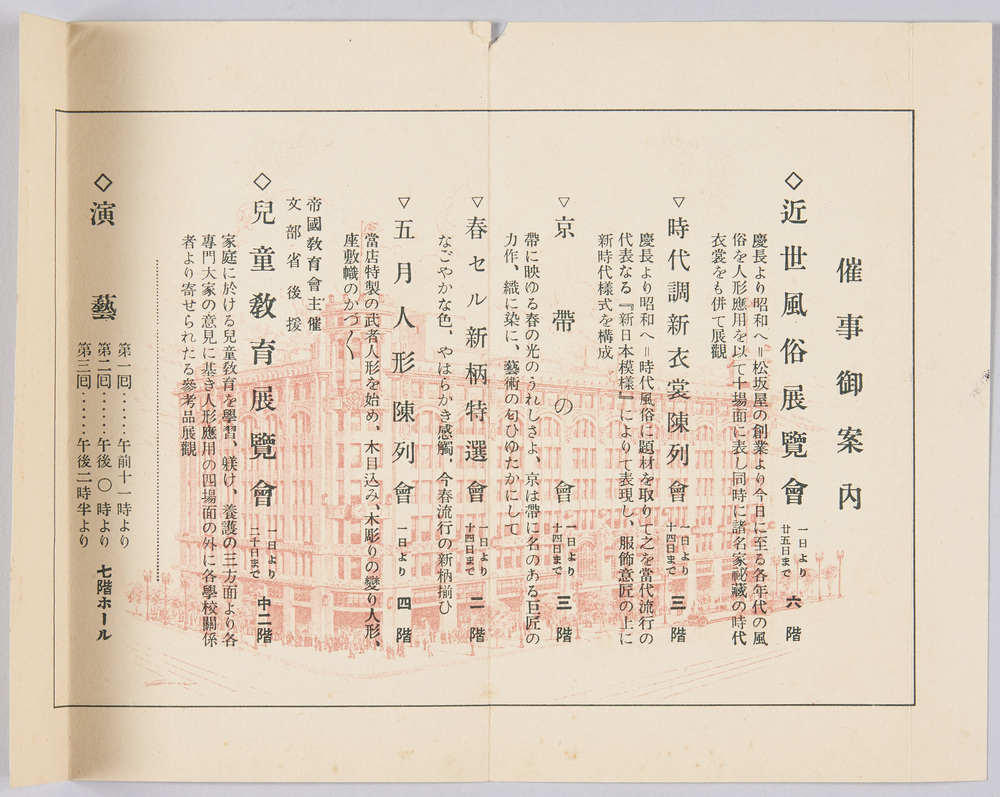 催事御案内
◇近世風俗展覽會 一日より 廿五日まで 六階
慶長より昭和へ＝松坂屋の創業より今日に至る各年代の風
俗を人形應用を以て十場面に表し同時に諸名家祕藏の時代
衣裳をも併て展觀
▽時代調新衣裳陳列會 一日より 十四日まで 三階
慶長より昭和へ＝時代風俗に題材を取りて之を當代流行の
代表なる『新日本模樣』によりて表現し、服飾意匠の上に
新時代樣式を構成
▽京帶の會 一日より 十四日まで 三階
帶に映ゆる春の光のうれしさよ、京は帶に名のある巨匠の
力作、織に染に、藝術の匂ひゆたかにして
▽春セル新柄特選會 一日より 十四日まで 二階
なごやかな色、やはらかき感觸、今春流行の新柄揃ひ
▽五月人形陳列會 一日より 四階
當店特製の武者人形を始め、木目込み、木彫りの變り人形、
座敷幟のかづ〱
帝國敎育會主催
文部省後援
◇兒童敎育展覽會 一日より 二十日まで 中二階
家庭に於ける兒童敎育を學習、躾け、養護の三方面より各
專門大家の意見に基き人形應用の四場面の外に各學校關係
者より寄せられたる參考品展觀
◇演藝
第一回‥‥‥午前十一時より
第二回‥‥‥午後〇時より
第三回‥‥‥午後二時半より
七階ホール